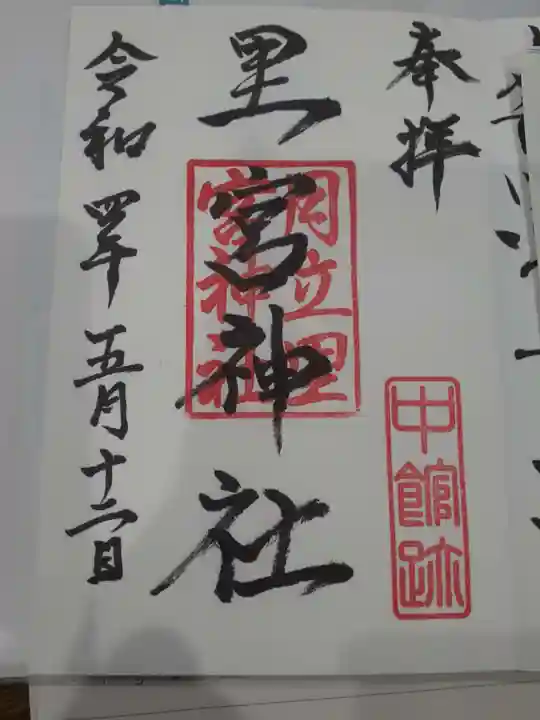 奉拝
中館跡
里宮神社
月立里
宮神社
令和四年五月十二日